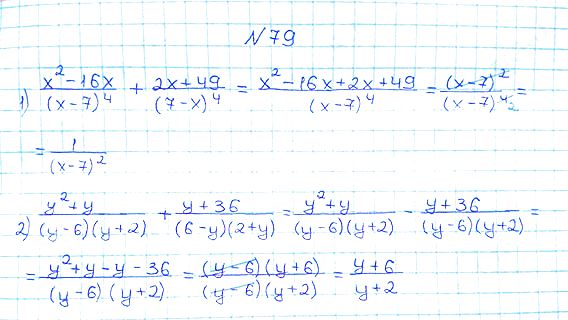 N 79
1) (x² - 16x)/(x - 7)⁴ + (2x + 49)/(7 - x)⁴ = (x² - 16x + 2x + 49)/(x - 7)⁴ = (x - 7)²/(x - 7)⁴² =
= 1/(x - 7)²
2) (y² + y)/((y - 6)(y + 2)) + (y + 36)/((6 - y)(2 + y)) = (y² + y)/((y - 6)(y + 2)) - (y + 36)/((y - 6)(y + 2)) =
= (y² + y - y - 36)/((y - 6)(y + 2)) = ((y - 6)(y + 6))/((y - 6)(y + 2)) = (y + 6)/(y + 2)